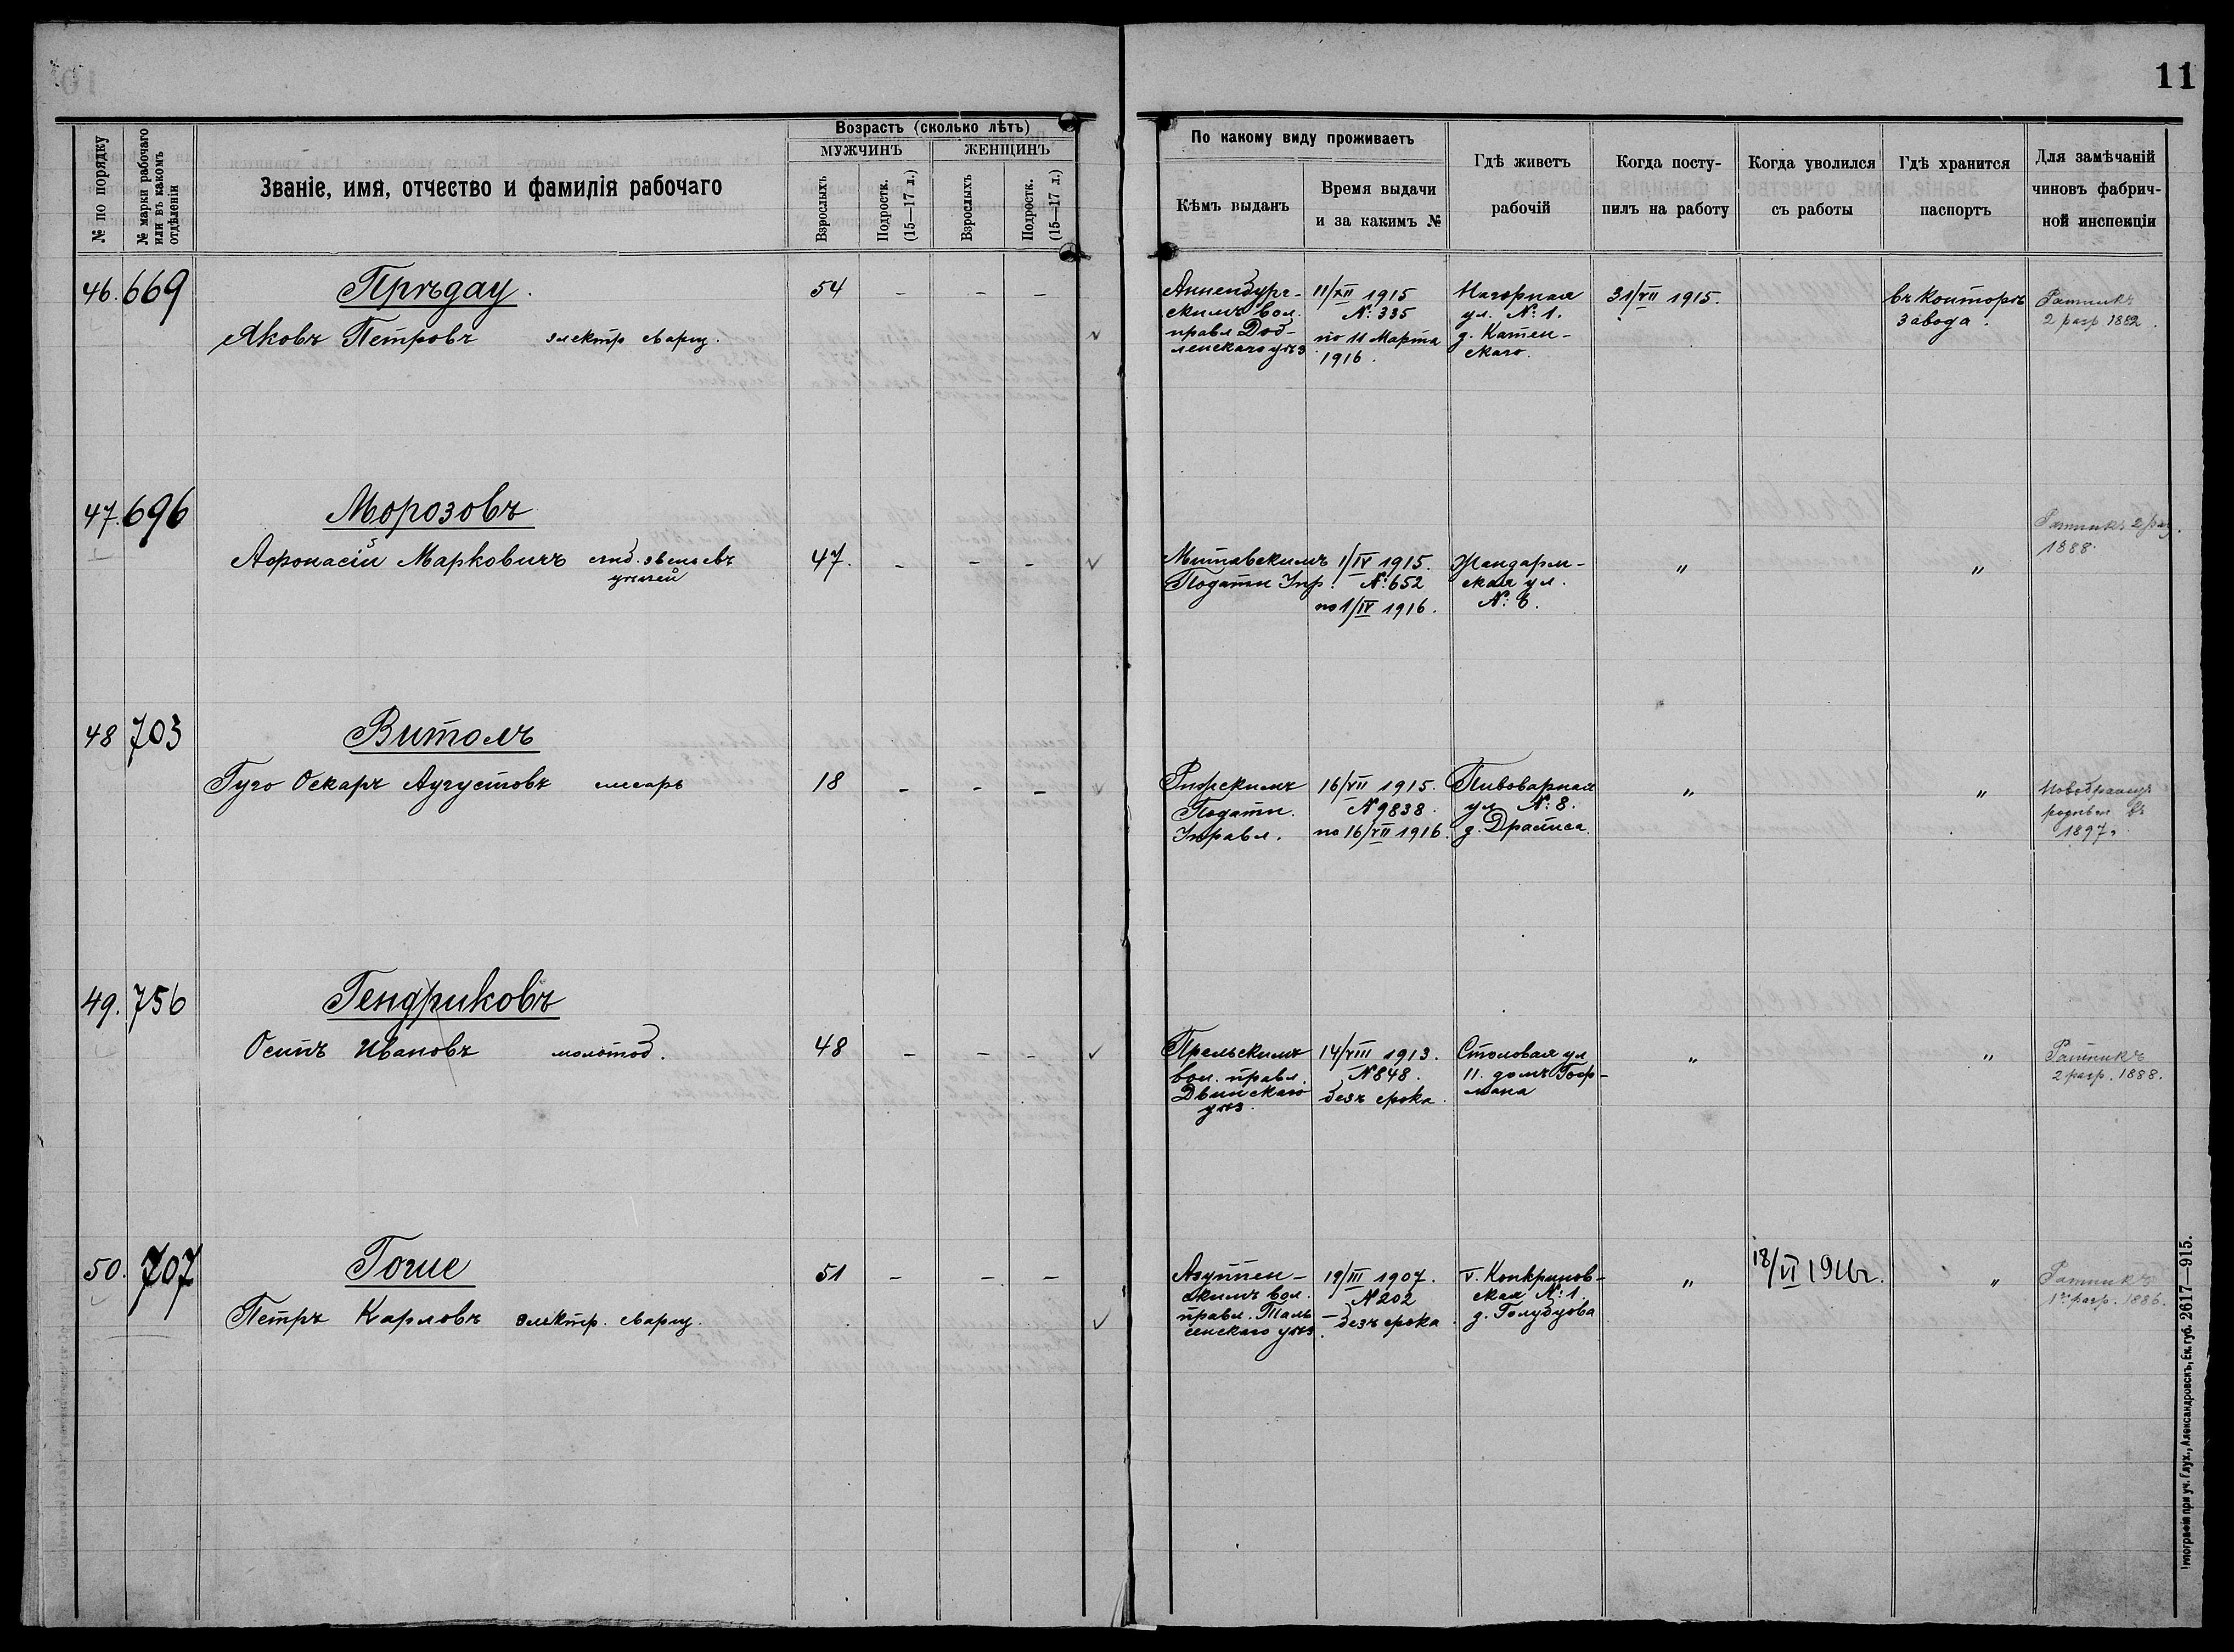 11
№ по порядку
№ марки рабочаго или въ какомъ отдѣленіи
Званіе, имя, отчество и фамилія рабочаго
Возрастъ (сколько лѣтъ)
МУЖЧИНЪ
ЖЕНЩИНЪ
Взрослыхъ
Подростк. (15—17 л.)
Взрослыхъ
Подростк. (15—17 л.)
По какому виду проживаетъ
Кѣмъ выданъ
Время выдачи
и за какимъ №
Гдѣ живетъ
рабочій
Когда посту-
пилъ на работу
Когда уволился
съ работы
Гдѣ хранится
паспортъ
Для замѣчаній
чиновъ фабрич-
ной инспекціи
46. 669 Прѣдау. 54 – – –
Яковъ Петровъ электр сварщ.
Анненбург-
скимъ вол.
правл. Доб-
ленскаго уѣз
11/XII 1915
№: 335
по 11 Марта
1916.
Нагорная
ул. №: 1.
д. Катен-
скаго.
31/VII 1915.
въ конторѣ
завода.
Ратникъ
2 разр 1882.
47. 696 Морозовъ
Афонасій Марковичъ звеньевъ 47. – – –
Митавскимъ
Податн Упр.
1/IV 1915.
№: 652
по 1/IV 1916.
Жандарм-
ская ул.
№: 6.
"
"
Ратникъ 2 раз.
1888.
48 703 Витолъ
Гуго Оскаръ Аугустовъ слесарь 18 – – –
Рижскимъ
Податн.
Управл.
16/VII 1915.
№ 9838.
по 16/VII 1916.
Пивоварная
ул №: 8.
д. Драписа.
"
"
Новобранецъ
въ
1897.
49. 756 Гендриковъ
Осипъ Ивановъ молотоб. 48 – – –
Прельскимъ
вол. правл.
Двинскаго
уѣз.
14/VIII 1913.
№ 848.
безъ срока.
Столовая ул
11. домъ Гоф-
мана
"
"
Ратникъ
2 разр. 1888.
50. 707 Гоше 51 – – –
Петръ Карловъ электр. сварщ.
Азуппен-
скимъ вол.
правл. Таль
сенскаго уѣз.
19/III 1907.
№ 202
– безъ срока
V. Конкринов-
ская №: 1.
д. Голубцова
"
18/VI 1916г.
"
Ратникъ
1го разр. 1886.
Типографія при уч. Глух., Александровскъ, Ек. губ. 2617—915.